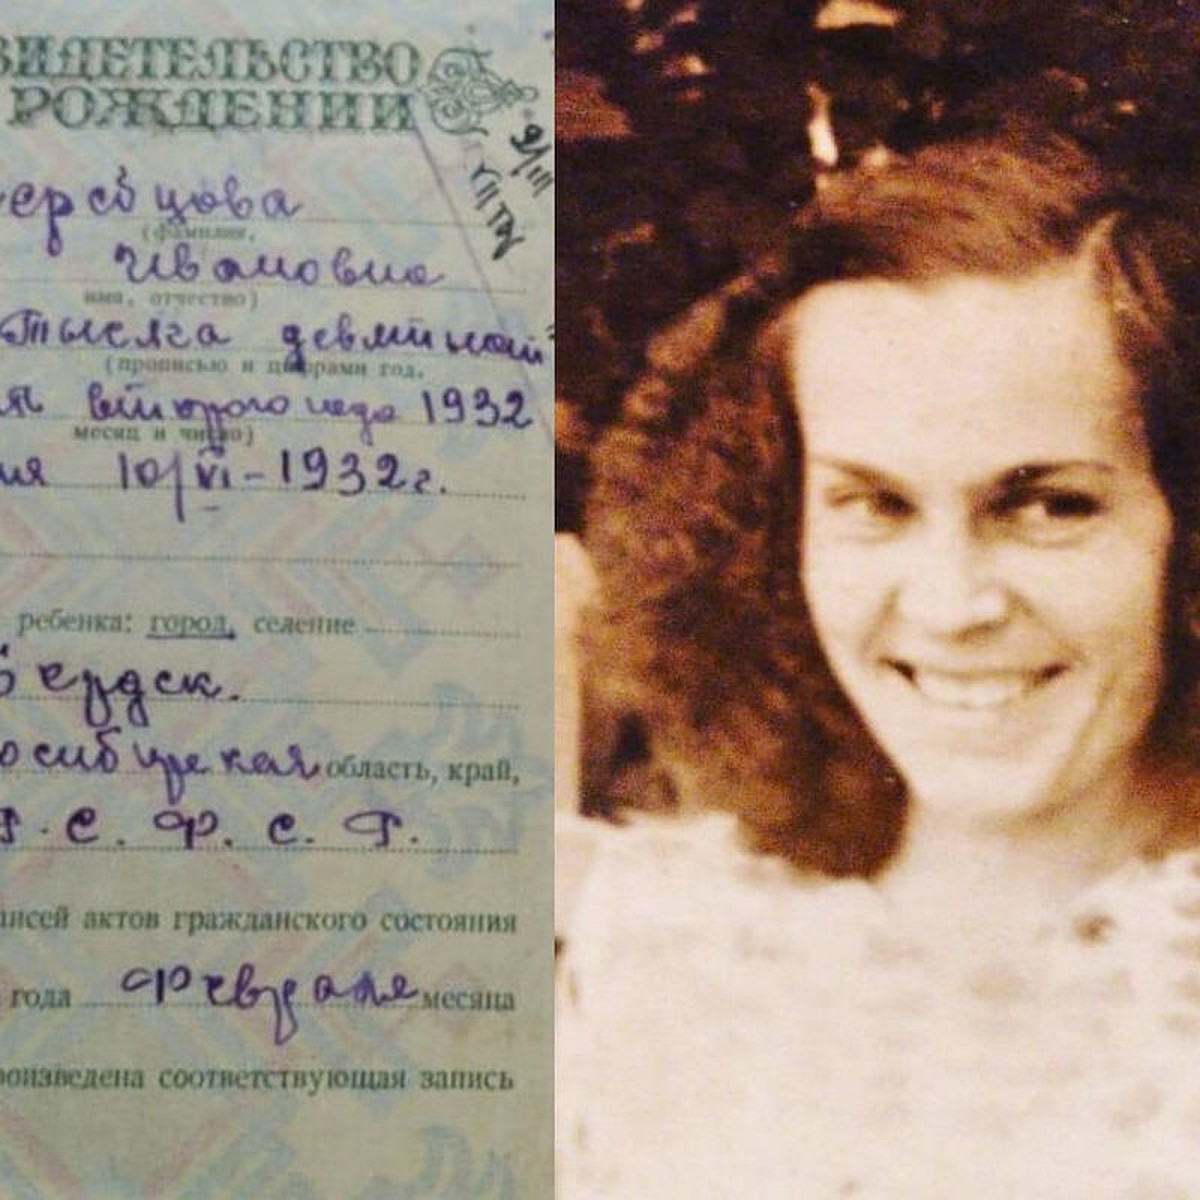 ВИДЕТЕЛЬСТВО
РОЖДЕНИИ
9/III
еребцова
(фамилия,
Ивановна
имя, отчество)
тысяча девятьсот
(прописью и цифрами год,
второго года 1932
месяц и число)
ия 10/VI-1932г.
ребенка: город, селение
Бердск.
осибирская область, край,
Р. С. Ф. С. Р.
писей актов гражданского состояния
года Февраля месяца
роизведена соответствующая запись